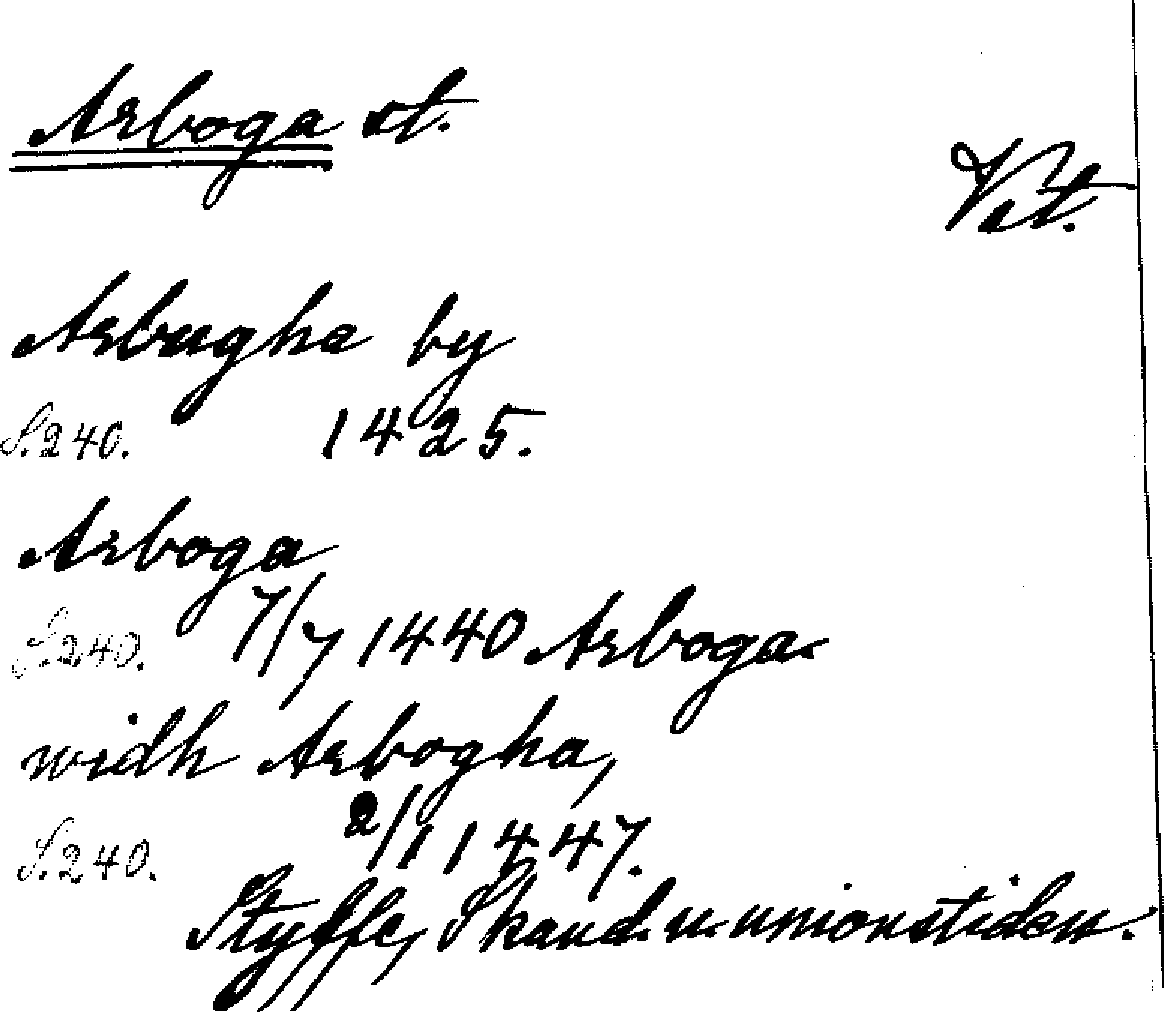 Arboga st.
Vstm.
Arbugha by
S. 240. 1425.
Arboga
S. 240. 7/7 1440 Arboga
widh Arbogha,
S. 240. 2/1 1447.
Styffe, Skand. u. unionstiden.